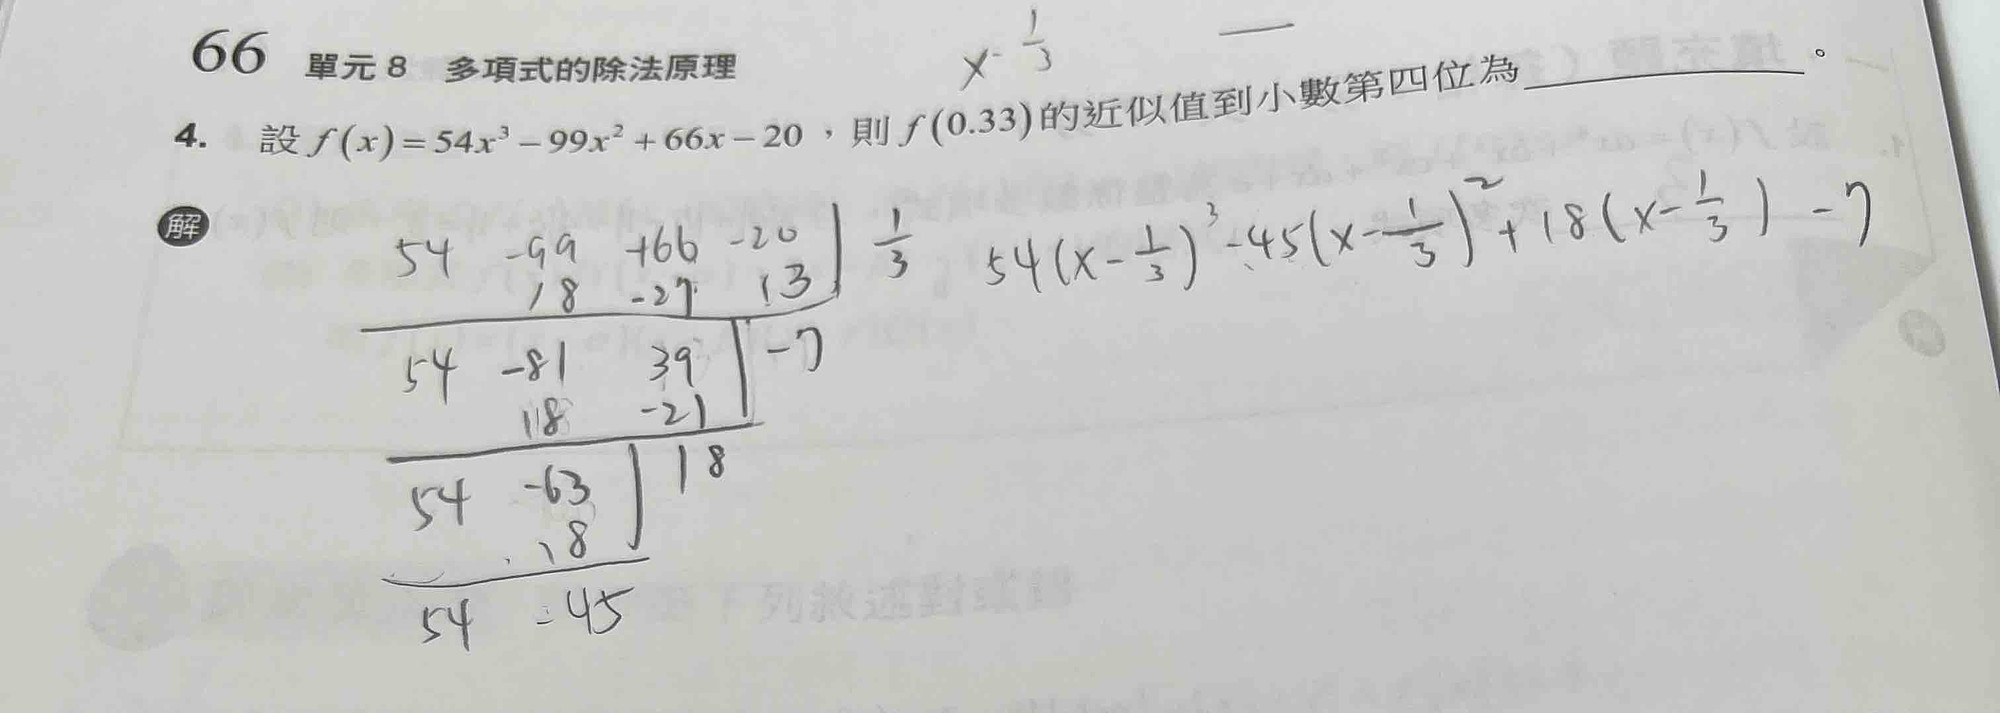 66 單元 8 多項式的除法原理
x - 1/3
4. 設 f(x) = 54x³ − 99x² + 66x − 20，則 f(0.33) 的近似值到小數第四位為＿＿＿＿＿＿。
解
54 -99 +66 -20 | 1/3
18 -27 13
54 -81 39 | -7
18 -21
54 -63 | 18
18
54 -45
54(x - 1/3)³ - 45(x - 1/3)² + 18(x - 1/3) - 7